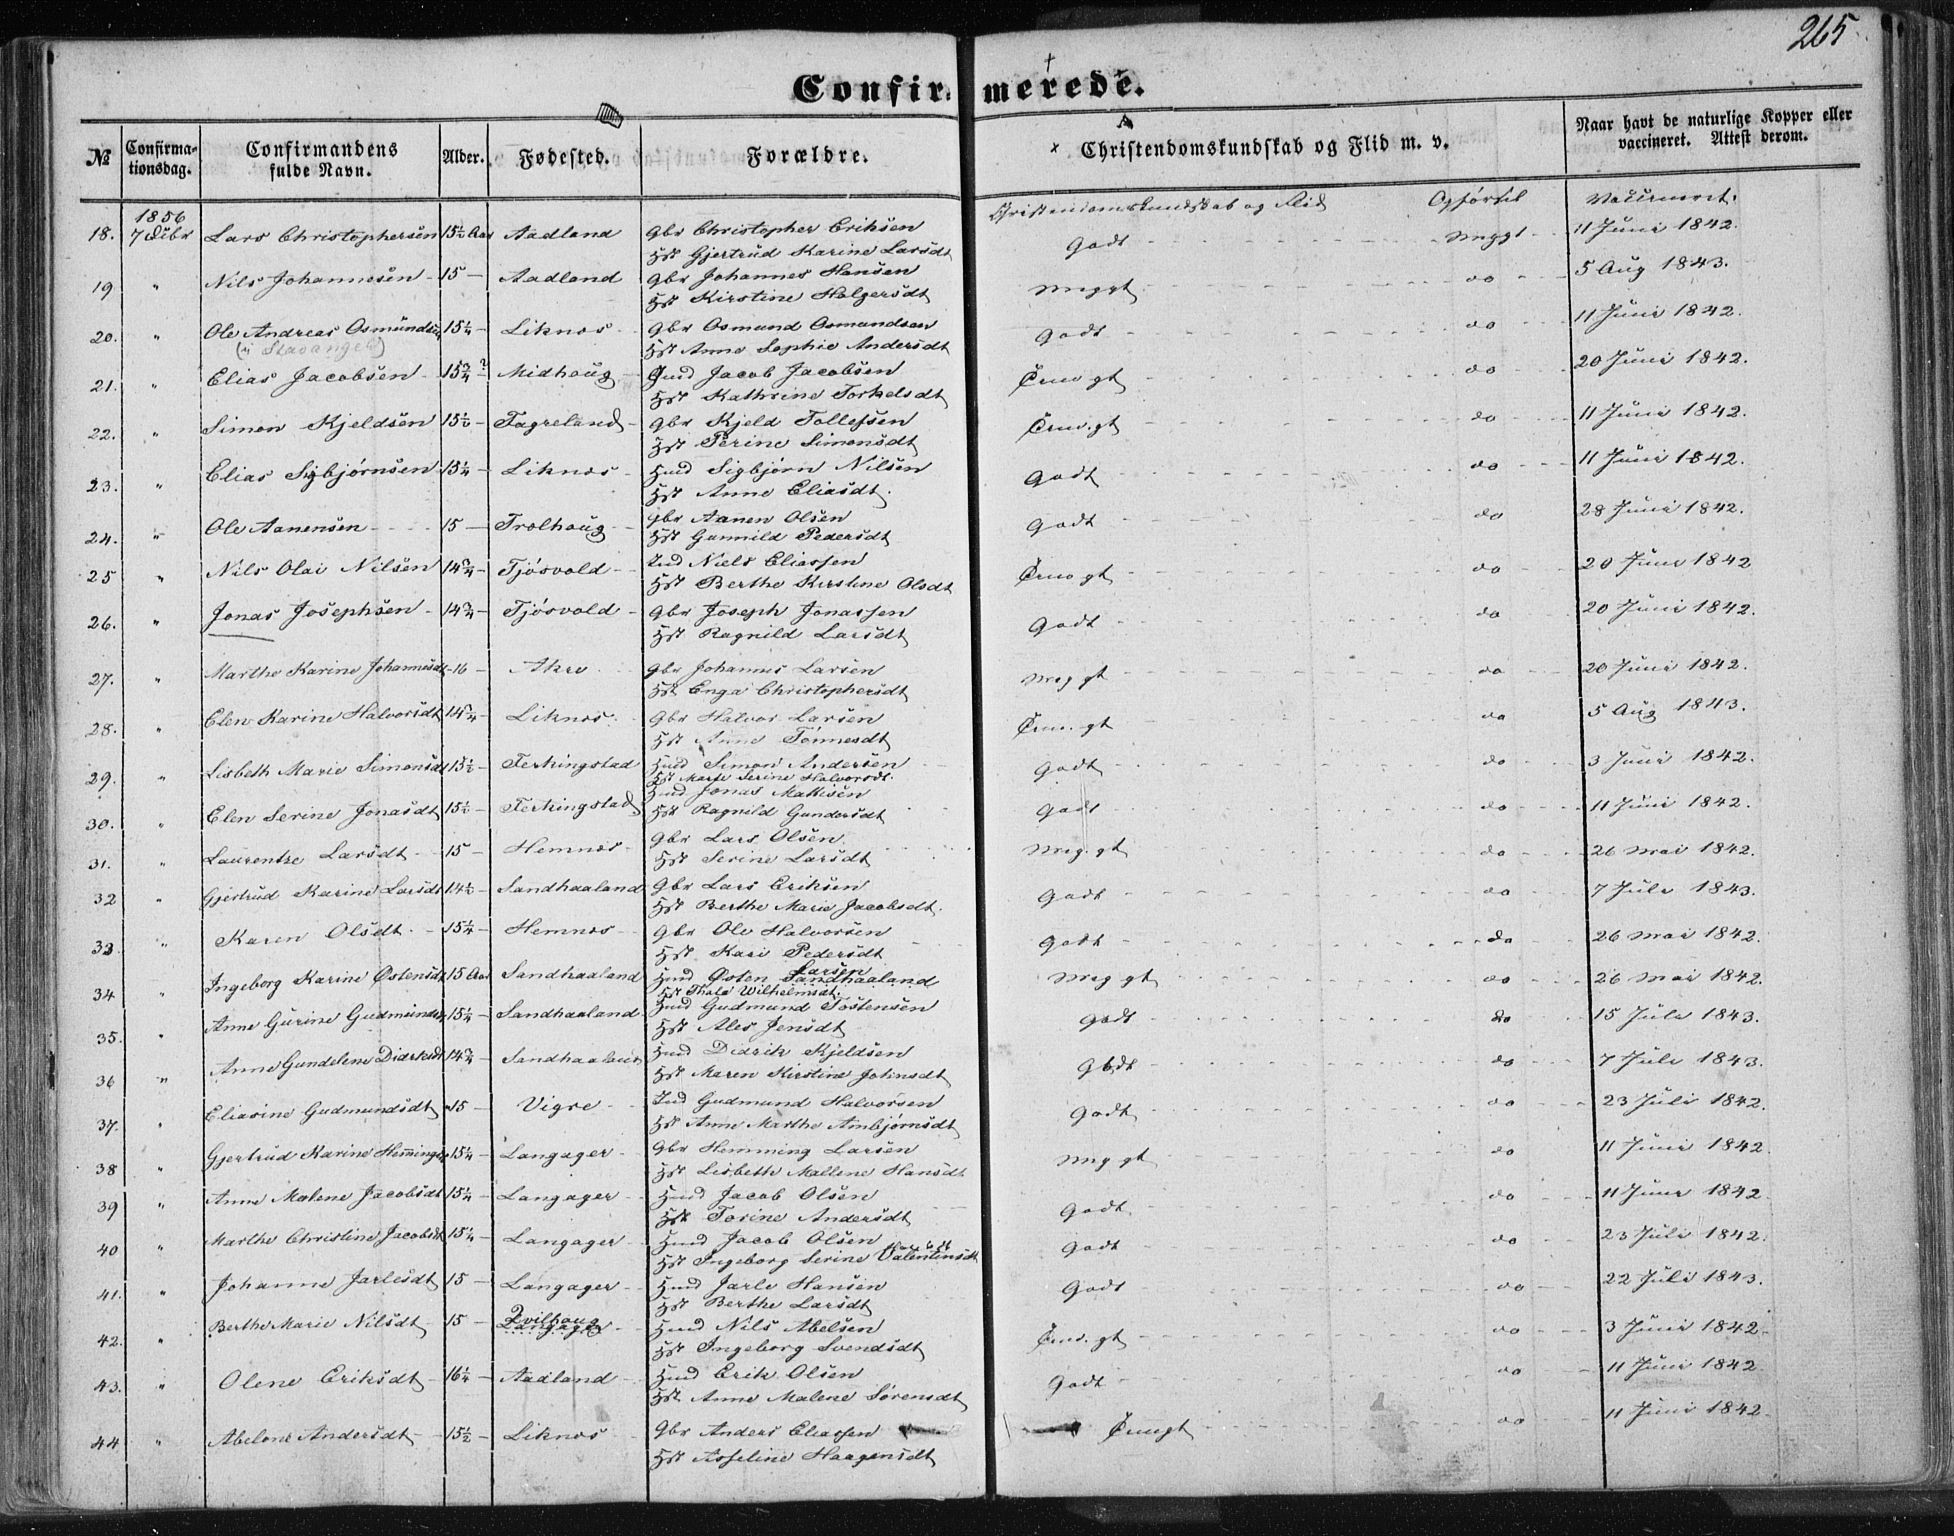 265
Confirmerede.
№
Confirmationsdag.
Confirmandens fulde Navn.
Alder.
Fødested.
Forældre.
Christendomskundskab og Flid m. v.
Naar havt de naturlige Kopper eller vaccineret. Attest derom.
1856 Christendomskundskab og Flid Opførsel
18. 7 Lars Christophersen 15½ Aar Aadland Gbr Christopher Eriksen Godt Meggt 11 Juni 1842.
Hst Gjertrud Karine Larsdt
19 " Nils Johannesen 15 Aadland Gbr Johannes Hansen Meggt do 5 Aug 1843.
Hst Kirstine Holgersdt
20. " Ole Andreas Osmundsen 15¼ Liknes Gbr Osmund Osmundsen Godt do 11 Juni 1842.
(i Stavanger) Hst Anne Sophie Andersdt
21. " Elias Jacobsen 15¾? Midhoug Jacob Jacobsen do 20 Juni 1842.
Hst Kathrine Torkelsdt
22. " Simon Kjeldsen 15½ Fagreland Gbr Kjeld Tollefsen do 11 Juni 1842.
Hst Perine Simonsdt
23. " Elias Sigbjørnsen 15¼ Liknes Hmd Sigbjørn Nilsen Godt do 11 Juni 1842.
Hst Anne Eliasdt.
24. " Ole Aanensen 15 Trolhoug Gbr Aanen Olsen Godt do 28 Juni 1842.
Hst Gunnild Pedersdt
25 " Nils Olai Nilsen 14¾ Tjøsvold Ind Niels Eliassen do 20 Juni 1842
Hst Berthe Kirstine Olsdt
26. " Jonas Josephsen 14¾ Tjøsvold Gbr Joseph Jonassen Godt do 20 Juni 1842.
Hst Ragnild Larsdt
27. " Marthe Karine Johannesdt 16 Akre Gbr Johannes Larsen Meg gt do 20 Juni 1842.
Hst Enga Christophersdt
28. " Elen Karine Halvorsdt 14¾ Liknes. Gbr Halvor Larsen do 5 Aug 1843.
Hst Anne Tønnesdt
29. " Lisbeth Marie Simonsdt 15½ Ferkingstad Hmd Simon Andersen Godt do 3 Juni 1842.
Hst Marte Serine Halvorsdt.
30. " Elen Serine Jonasdt 15½ Ferkingstad Hmd Jonas Matkisen Godt do 11 Juni 1842.
Hst Ragnild Gundersdt
31. " Laurentze Larsdt 15 Hemnes Gbr Lars Olsen Meg. gt do 26 Mai 1842.
Hst Serine Larsdt
32 " Gjertrud Karine Larsdt 14½ Sandhaaland Gbr Lars Eriksen Godt do 7 Juli 1843.
Hst Berthe Marie Jacobsdt.
33. " Karen Olsdt. 15¼ Hemnes Gbr Ole Halvorsen Godt do 26 Mai 1842.
Hst Kari Pedersdt
34 " Ingeborg Karine Østensdt 15 Aar Sandhaaland Hmd Østen Larsen Sandhaaland Meg gt do 26 Mai 1842.
Hst Thala Wilhelmsdt.
35. " Anne Gurine Gudmundsdt 15¼ Sandhaaland Hmd Gudmund Tostensen Godt do 15 Juli 1843.
Hst Ales Jensdt
36 " Anne Gundelene Didriksdt 14¾ Sandhaaland Hmd Didrik Kjeldsen Godt do 7 Juli 1843.
Hst Maren Kirstine Johnsdt
37. " Eliasine Gudmundsdt 15 Vigre Ind Gudmund Halvorsen Godt do 23 Juli 1842.
Hst Anne Marthe Ambjørnsdt
38 " Gjertrud Karine Hemingsdt 15¼ Langager Gbr Hemming Larsen Meg gt do 11 Juni 1842
Hst Lisbeth Mallene Hansdt
39 " Anne Malene Jacobsdt 15¼ Langager Hmd Jacob Olsen Godt do 11 Juni 1842
Hst Torine Andersdt
40 " Marthe Christine Jacobsdt 15¼ Langager Hmd Jacob Olsen Godt do 23 Juli 1842.
Hst Ingeborg Serine Valentinsdt
41. " Johanne Jarlesdt 15 Langager Hmd Jarle Hansen Godt do 22 Juli 1843.
Hst Berthe Larsdt
42. " Berthe Marie Nilsdt 15 Qvilhoug Langager Hmd Nils Abelsen do 3 Juni 1842
Hst Ingeborg Svendsdt
43. " Olene Eriksdt 16¼ Aadland Hmd Erik Olsen Godt do 11 Juni 1842
Hst Anne Malene Sørensdt
44 " Abelone Andersdt 15½ Liknes Gbr Anders Eliassen do 11 Juni 1842
Hst Asseline Haagensdt